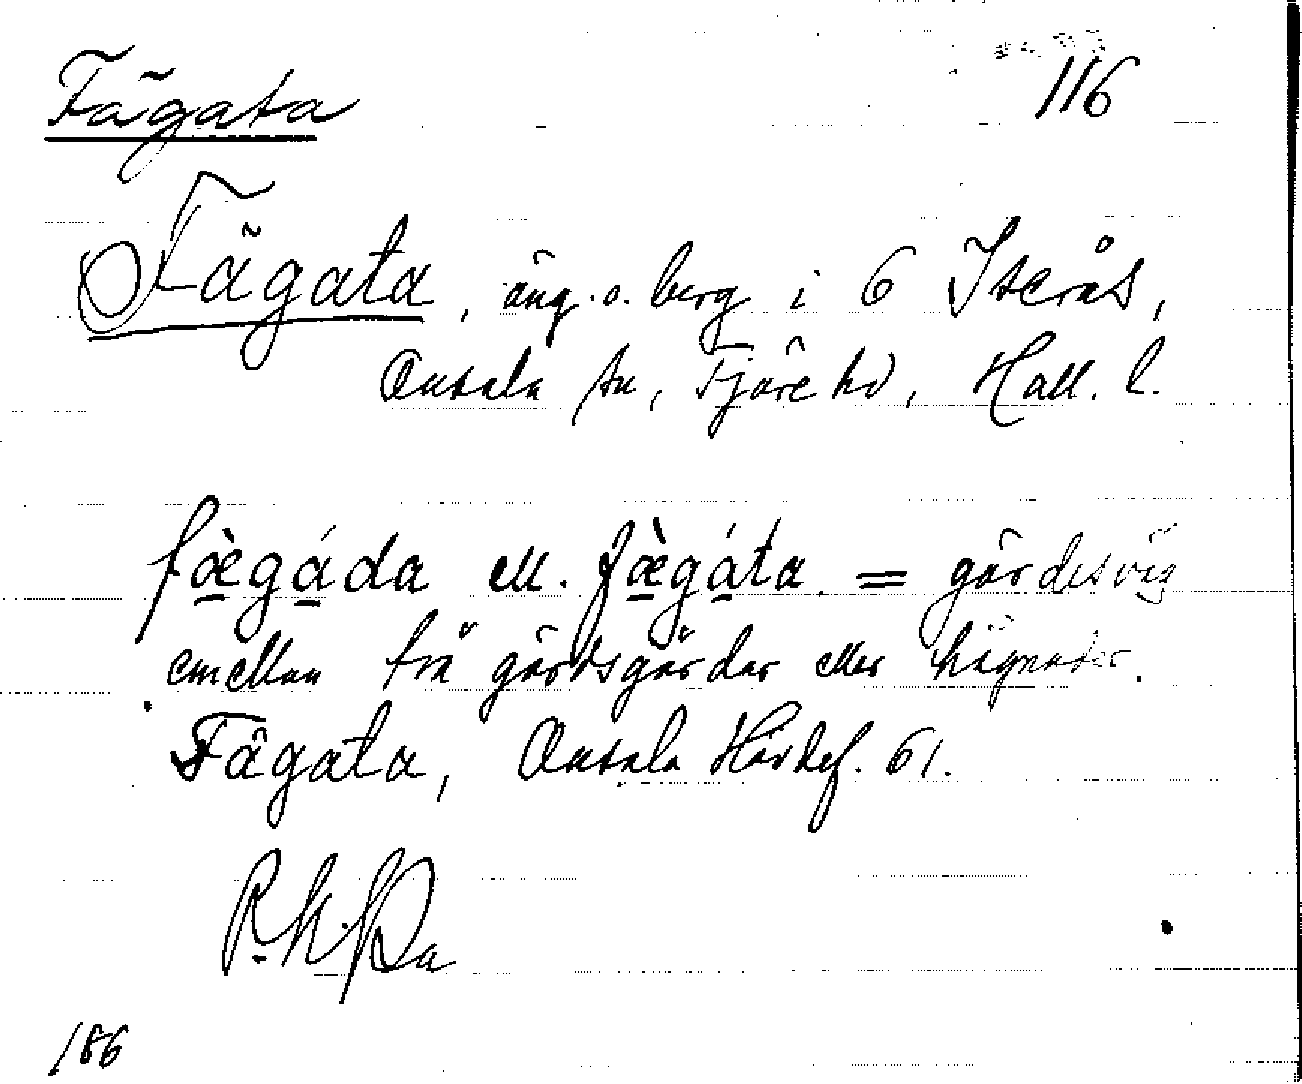 Fägata
116
Fägata, äng. o. berg i 6 Iserås,
Onsala sn, Fjäre hd, Hall. l.
fæ̀gáda ell. fæ̀gáta. = gärdesväg
emellan två gärdsgårdar eller hägnader.
Fägata, Onsala Härdef. 61.
186